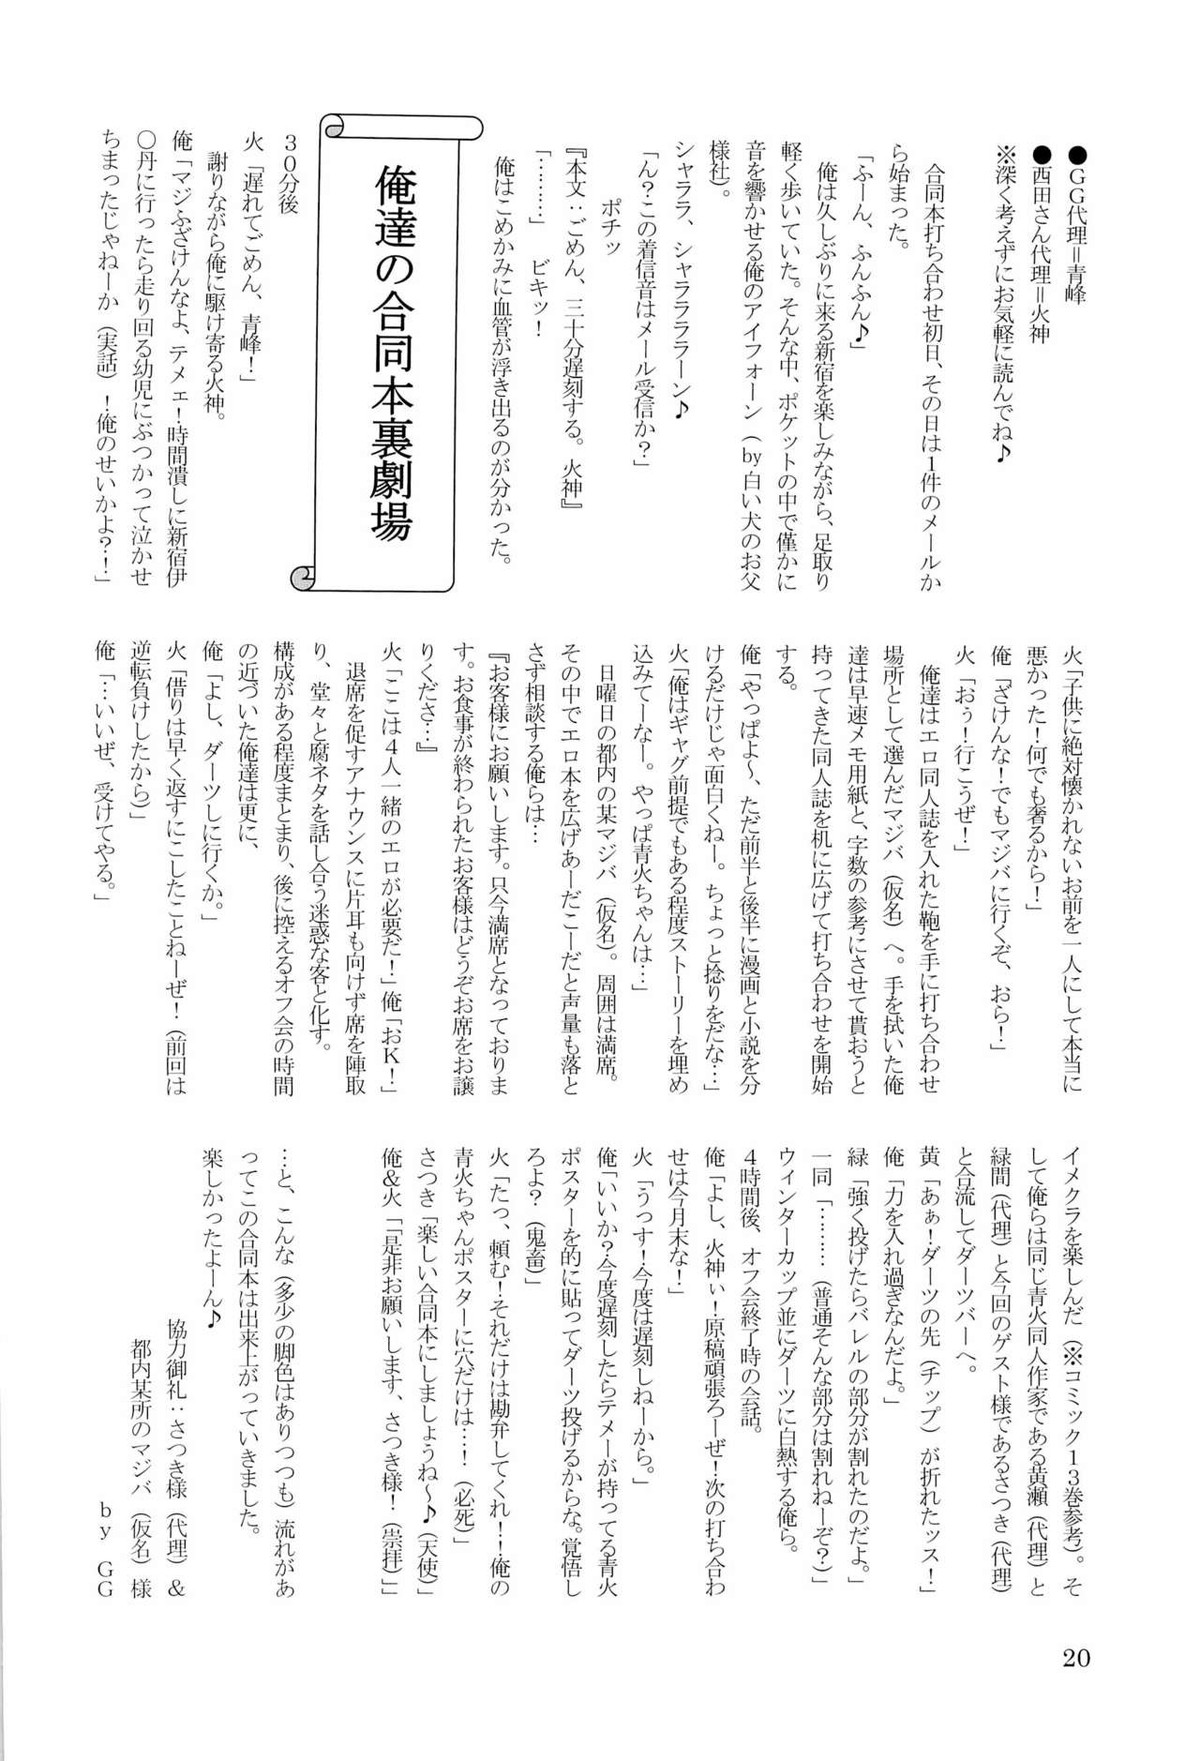 ●GG代理＝青峰
●西田さん代理＝火神
※深く考えずにお気軽に読んでね♪
合同本打ち合わせ初日、その日は１件のメールか
ら始まった。
「ふーん、ふんふん♪」
俺は久しぶりに来る新宿を楽しみながら、足取り
軽く歩いていた。そんな中、ポケットの中で僅かに
音を響かせる俺のアイフォーン（by白い犬のお父
様社）。
シャララ、シャララララーン♪
「ん？この着信音はメール受信か？」
ポチッ
『本文：ごめん、三十分遅刻する。火神』
「………」　ビキッ！
俺はこめかみに血管が浮き出るのが分かった。
俺達の合同本裏劇場
３０分後
火「遅れてごめん、青峰！」
謝りながら俺に駆け寄る火神。
俺「マジふざけんなよ、テメェ！時間潰しに新宿伊
〇丹に行ったら走り回る幼児にぶつかって泣かせ
ちまったじゃねーか（実話）！俺のせいかよ？！」
火「子供に絶対懐かれないお前を一人にして本当に
悪かった！何でも奢るから！」
俺「ざけんな！でもマジバに行くぞ、おら！」
火「おぅ！行こうぜ！」
俺達はエロ同人誌を入れた鞄を手に打ち合わせ
場所として選んだマジバ（仮名）へ。手を拭いた俺
達は早速メモ用紙と、字数の参考にさせて貰おうと
持ってきた同人誌を机に広げて打ち合わせを開始
する。
俺「やっぱよ～、ただ前半と後半に漫画と小説を分
けるだけじゃ面白くねー。ちょっと捻りをだな…」
火「俺はギャグ前提でもある程度ストーリーを埋め
込みてーなー。やっぱ青火ちゃんは…」
日曜日の都内の某マジバ（仮名）。周囲は満席。
その中でエロ本を広げあーだこーだと声量も落と
さず相談する俺らは…
『お客様にお願いします。只今満席となっておりま
す。お食事が終わられたお客様はどうぞお席をお譲
りくださ…』
火「ここは４人一緒のエロが必要だ！」俺「おK！」
退席を促すアナウンスに片耳も向けず席を陣取
り、堂々と腐ネタを話し合う迷惑な客と化す。
構成がある程度まとまり、後に控えるオフ会の時間
の近づいた俺達は更に、
俺「よし、ダーツしに行くか。」
火「借りは早く返すにこしたことねーぜ！（前回は
逆転負けしたから）」
俺「…いいぜ、受けてやる。」
イメクラを楽しんだ（※コミック１３巻参考）。そ
して俺らは同じ青火同人作家である黄瀬（代理）と
緑間（代理）と今回のゲスト様であるさつき（代理）
と合流してダーツバーへ。
黄「あぁ！ダーツの先（チップ）が折れたッス！」
俺「力を入れ過ぎなんだよ。」
緑「強く投げたらバレルの部分が割れたのだよ。」
一同「………（普通そんな部分は割れねーぞ？）」
ウィンターカップ並にダーツに白熱する俺ら。
４時間後、オフ会終了時の会話。
俺「よし、火神ぃ！原稿頑張ろーぜ！次の打ち合わ
せは今月末な！」
火「うっす！今度は遅刻しねーから。」
俺「いいか？今度遅刻したらテメーが持ってる青火
ポスターを的に貼ってダーツ投げるからな。覚悟し
ろよ？（鬼畜）」
火「たっ、頼む！それだけは勘弁してくれ！！俺の
青火ちゃんポスターに穴だけは…！（必死）」
さつき「楽しい合同本にしましょうね～♪（天使）」
俺＆火「「是非お願いします、さつき様！（崇拝）」」
…と、こんな（多少の脚色はありつつも）流れがあ
ってこの合同本は出来上がっていきました。
楽しかったよーん♪
協力御礼：さつき様（代理）＆
都内某所のマジバ（仮名）様
by GG
20